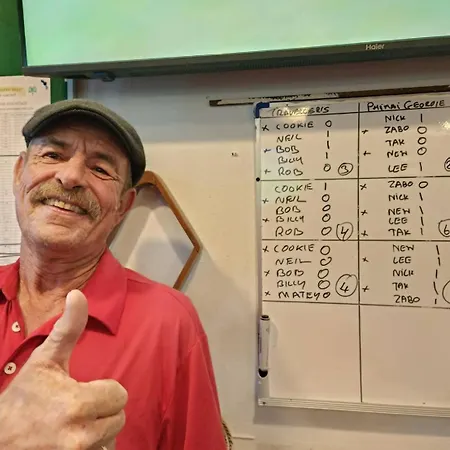 Haier
x COOKIE 0
NEIL 1
x BOB 1
BILLY 1
x ROB 0 3
COOKIE 1
x NEIL 0
BOB 0
x BILLY 0
ROB 0 4
x COOKIE 0
NEIL 0
x BOB 0
BILLY 0
x MATEY 0 4
GEORGIE
NICK 1
x ZABO 0
TAK 0
x NEW 0
LEE 1
x ZABO 0
NICK 1
x NEW 1
LEE 1
x TAK 1 6
NEW 1
x LEE 1
NICK 1
x TAK 1
ZABO 0